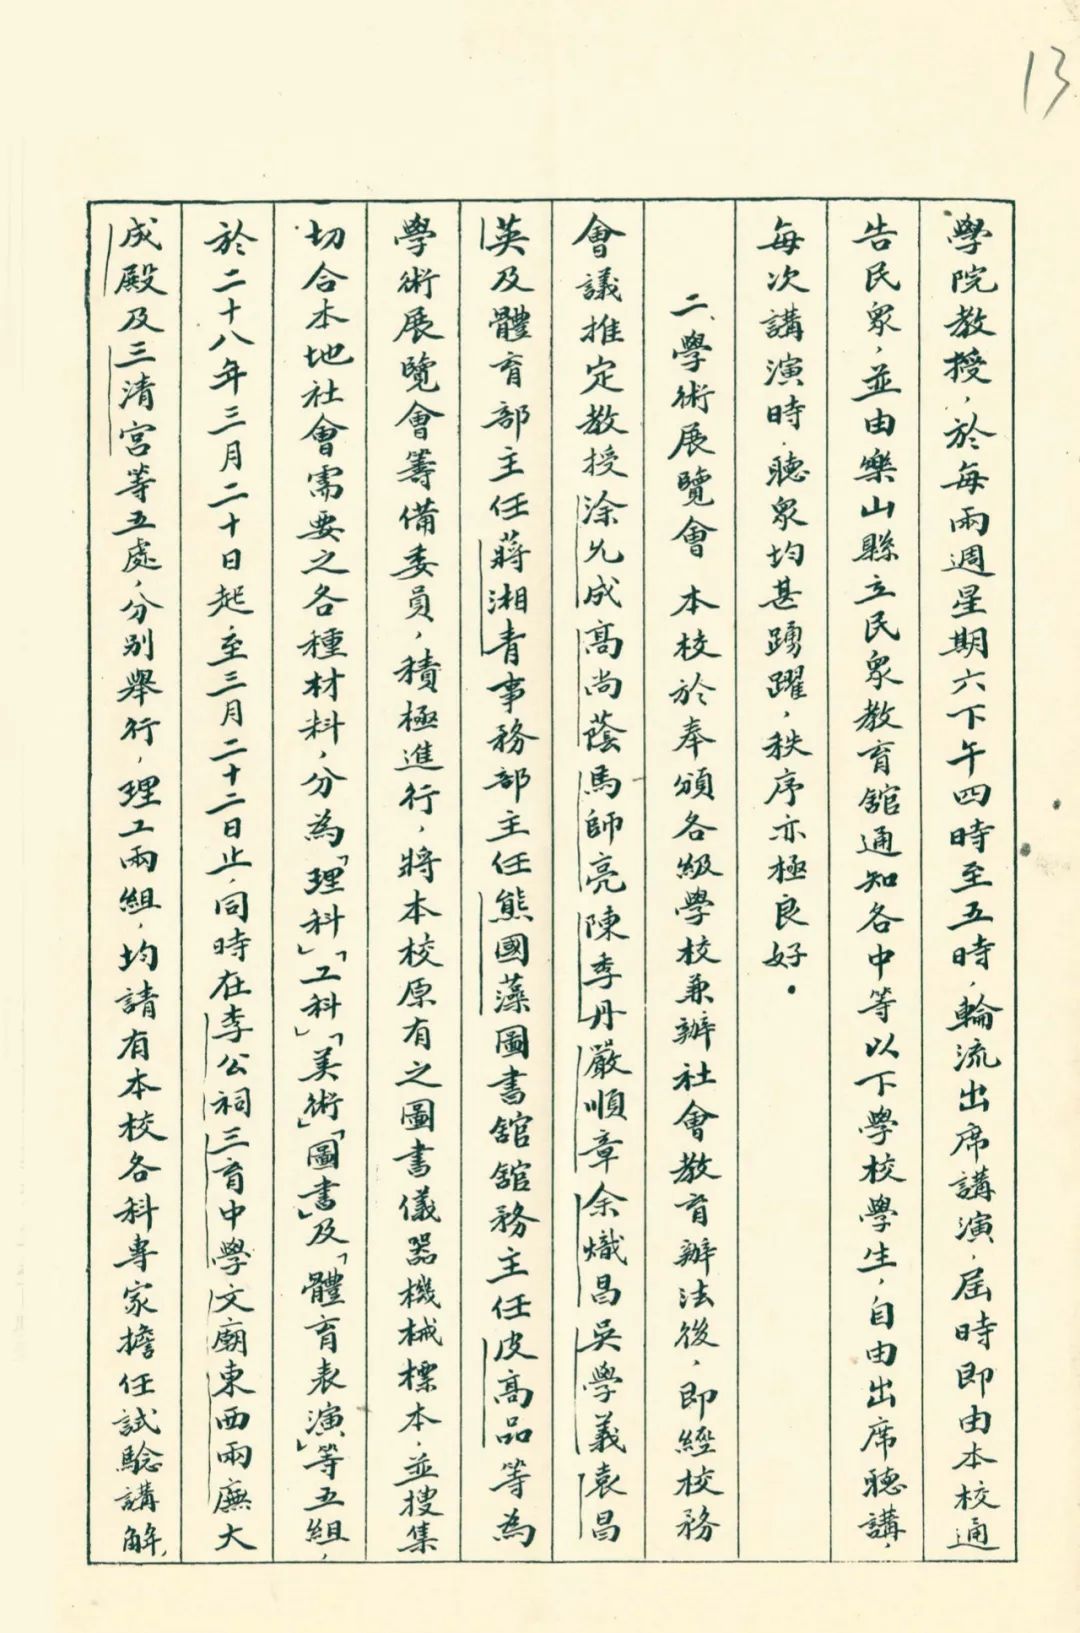 13
學院教授，於每兩週星期六下午四時至五時，輪流出席講演，屆時即由本校通
告民眾，並由樂山縣立民眾教育舘通知各中等以下學校學生，自由出席聽講，
每次講演時，聽眾均甚踴躍，秩序亦極良好。
二、學術展覽會 本校於奉頒各級學校兼辦社會教育辦法後，即經校務
會議推定教授涂允成高尚蔭馬師亮陳季丹嚴順章余熾昌吳學義袁昌
英及體育部主任蔣湘青事務部主任熊國藻圖書舘舘務主任皮高品等為
學術展覽會籌備委員，積極進行，將本校原有之圖書儀器機械標本，並搜集
切合本地社會需要之各種材料，分為「理科」「工科」「美術」「圖書」及「體育表演」等五組，
於二十八年三月二十日起至三月二十二日止，同時在李公祠三育中學文廟東西兩廡大
成殿及三清宮等五處，分別舉行，理工兩組，均請有本校各科專家擔任試驗講解，